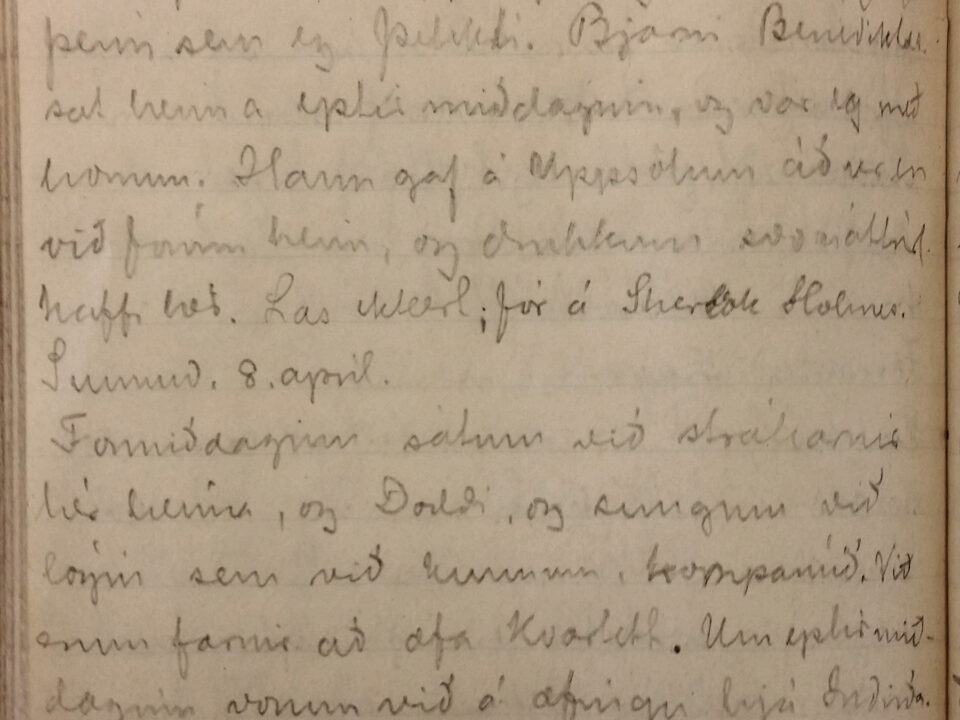 þeim sem eg þekkti. Bjarni Benedikts.
sat heima eptir miðdaginn, og var eg með
honum. Hann gaf á Uppsölum áður en
við fórum heim, og drukkum
kaffi hér. Las ekkert; fór á Sherlok Holmes.
Sunnud. 8. april.
Formiðdaginn sátum við strákarnir
hér heima, og Doddi, og sungum við
lögin sem við kunnum. kompaníið. Við
erum farnir að æfa Kvartett. Um eptirmið-
daginn vorum við á æfingu hjá Indriða.